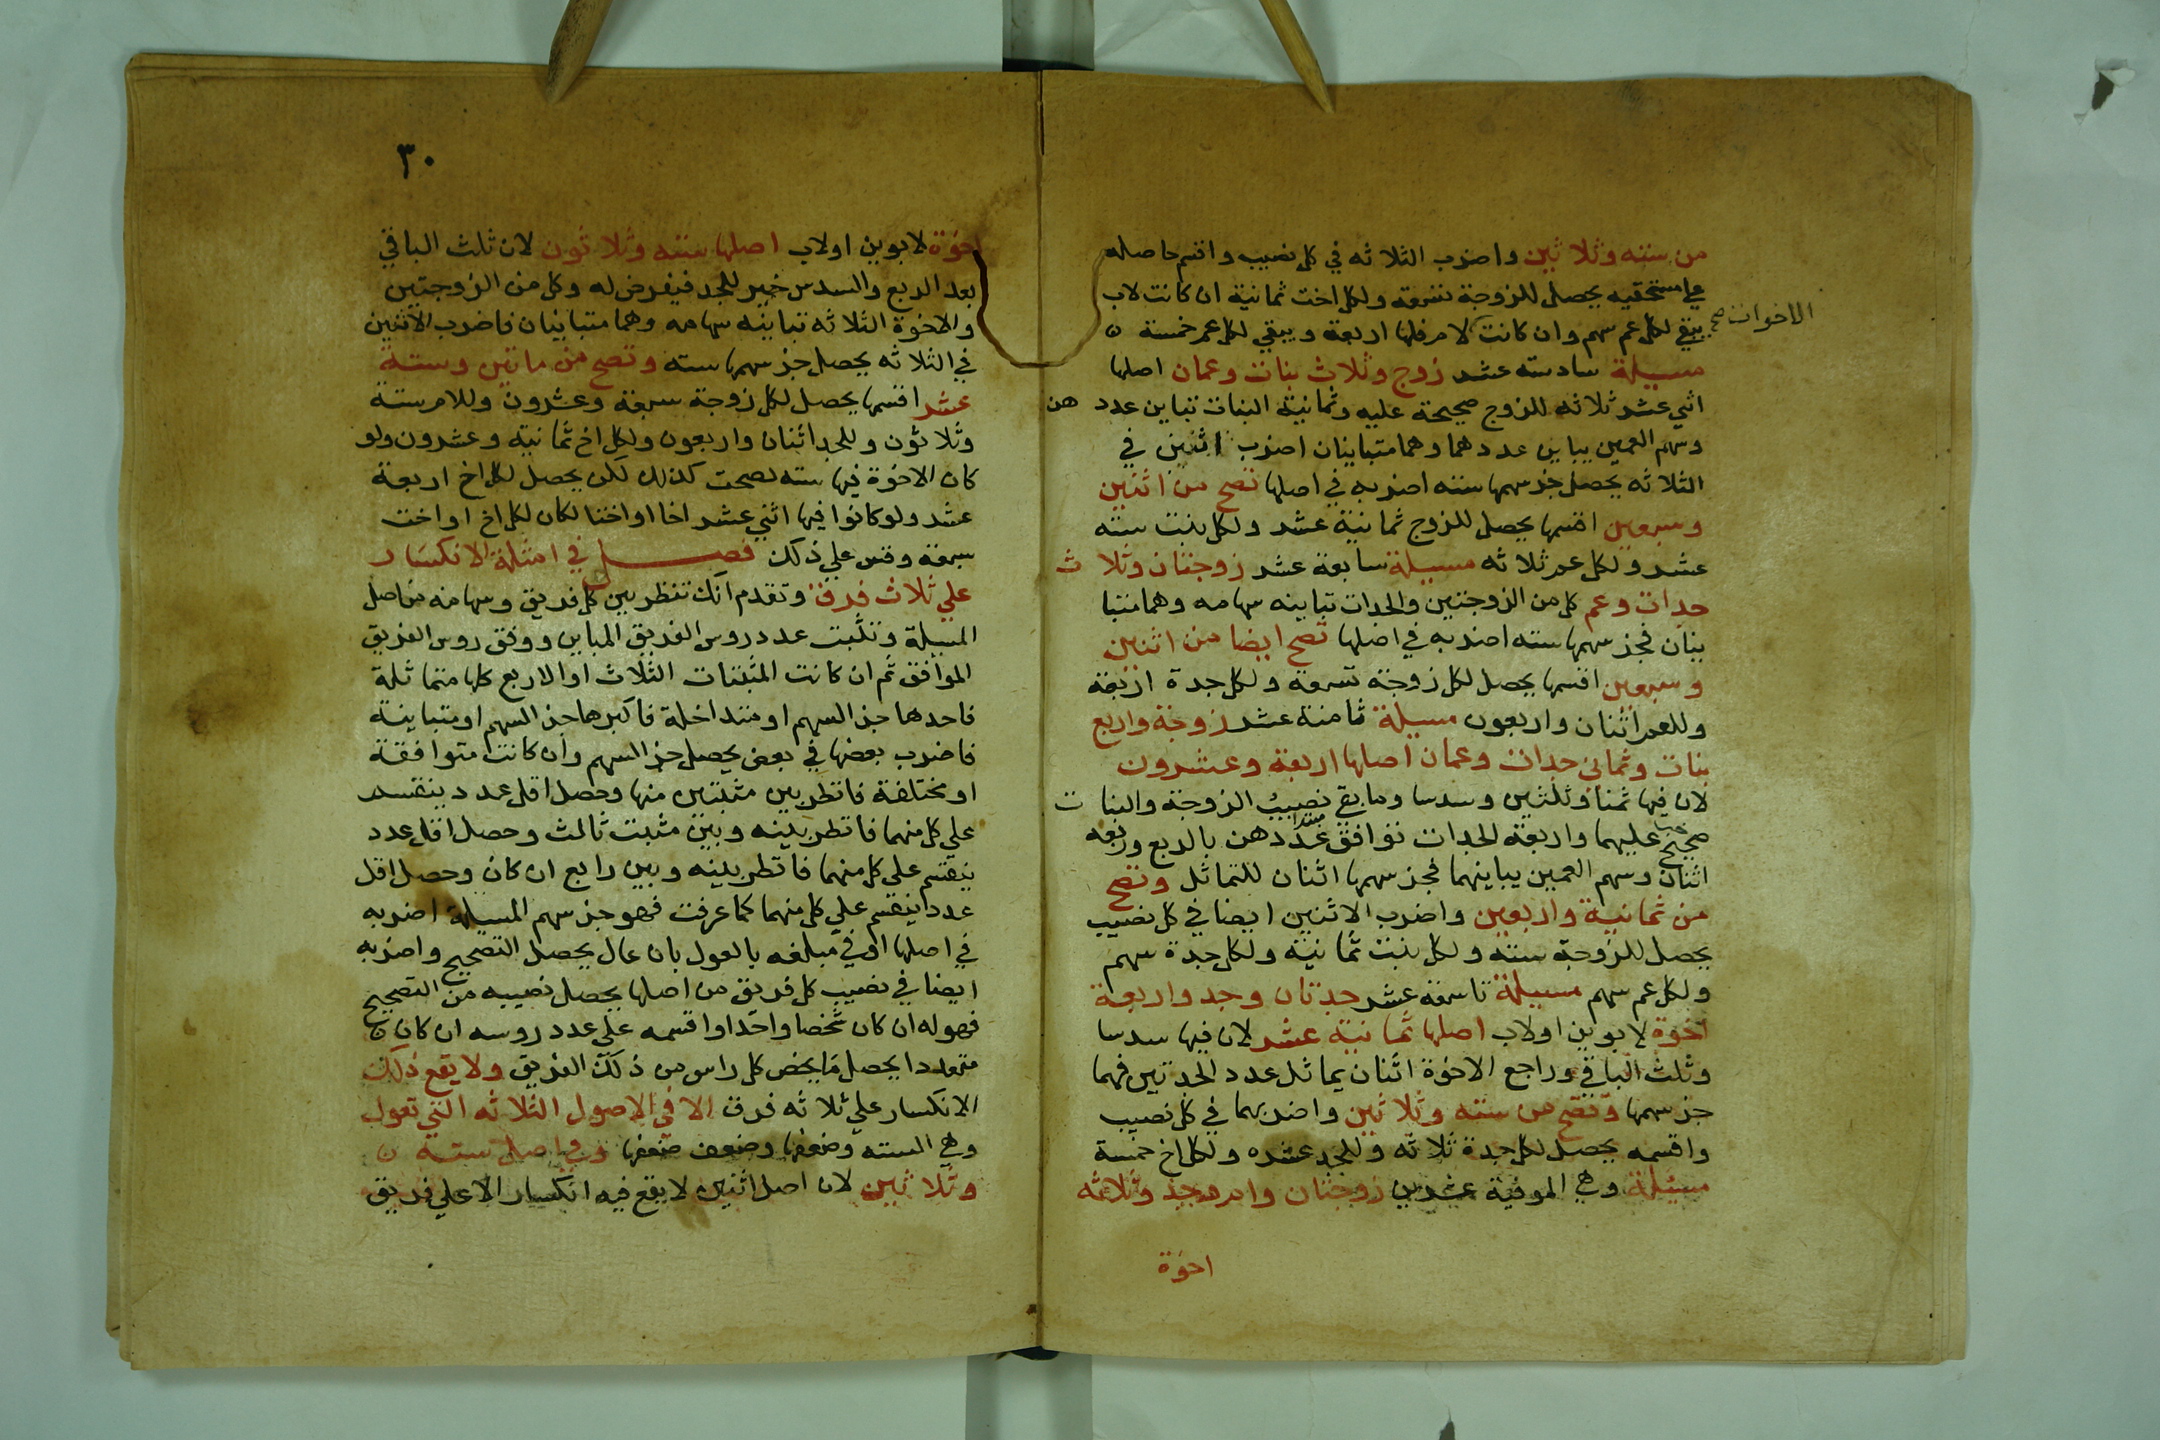 من ستة وثلاثين واضرب الثلاثه في كل نصيب واقسم حاصله
علي مستحقيه يحصل للزوجة تسعة ولكل اخت ثمانية ان كانت لاب
يبقي لكل عم سهم وان كانت لام فلها اربعة ويبقي لكل عم خمسة ن
الاخوات صح
مسيلة سادسته عشر زوج وثلاث بنات وعمان اصلها
اثني عشر ثلاثه للزوج صحيحة عليه وثمانية البنات تباين عدد هن
وسهم العمين يباين عددهما وهما متباينان اضرب اثنين في
الثلاثه يحصل جز سهمها ستة اضربه في اصلها تصح من اثنين
وسبعين اقسمها يحصل للزوج ثمانية عشر ولكل بنت سته
عشر ولكل عم ثلاثه مسيلة سابعة عشر زوجتان وثلا ث
جدات وعم كل من الزوجتين والجدات تباينه سهامه وهما متبا
ينان فجز سهمها سته اضربه في اصلها تصح ايضا من اثنين
وسبعين اقسمها يحصل لكل زوجة تسعة ولكل جدة اربعة
وللعم اثنان واربعون مسيلة ثامنة عشر زوجة واربع
بنات وثماني جدات وعمان اصلها اربعة وعشرون
لان فيها ثمنا وثلثين وسدسا وما بقي نصيب الزوجة والبنا ت
صحيح عليهما واربعة الجدات توافق عددهن بالربع وربعه
اثنان وسهم العمين يباينهما فجز سهمها اثنان للتماثل وتصح
من ثمانية واربعين واضرب الاثنين ايضا في كل نصيب
يحصل للزوجة سته ولكل بنت ثمانية ولكل جدة سهم
ولكل عم سهم مسيلة تاسعة عشر جدتان وجد واربعة
اخوة لابوين اولاب اصلها ثمانية عشر لان فيها سدسا
وثلث الباقي وراجع الاخوة اثنان يماثل عدد الجدتين فهما
جز سهمها وتصح من ستة وثلاثين واضربهما في كل نصيب
واقسمه يحصل لكل جدة ثلاثه وللجد عشره ولكل اخ خمسة
مسئلة وهي الموفية عشرين زوجتان وام وجد وثلاثه
اخوة
٣٠
اخوة لابوين اولاب اصلها ستة وثلاثون لان ثلث الباقي
بعد الربع والسدس خير للجد فيفرض له وكل من الزوجتين
والاخوة الثلاثه تباينه سهامه وهما متباينان فاضرب الاثنين
في الثلاثه يحصل جز سهمها سته وتصح من ماتين وستة
عشر اقسمها يحصل لكل زوجة سبعة وعشرون وللام ستة
وثلاثون وللجد اثنان واربعون ولكل اخ ثمانية وعشرون ولو
كان الاخوة فيها سته لصحت كذلك لكن يحصل لكل اخ اربعة
عشر ولو كانوا فيها اثني عشر اخا او اختا لكان لكل اخ او اخت
سبعة وقس علي ذلك فصل في امثلة الانكسار
علي ثلاث فرق وتقدم انك تنظر بين كل فريق وسهامه من اصل
المسيلة وتثبت عدد روس الفريق المباين ووفق روس الفريق
الموافق ثم ان كانت المثبتات الثلاث او الاربع كلها متماثلة
فاحدها جز السهم او متداخلة فاكبرها جز السهم او متباينة
فاضرب بعضها في بعض يحصل جز السهم وان كانت متوافقة
او مختلفة فانظر بين مثبتين منها وحصل اقل عدد ينقسم
علي كل منهما فانظر بينه وبين مثبت ثالث وحصل اقل عدد
ينقسم علي كل منهما فانظر بينه وبين رابع ان كان وحصل اقل
عدد ينقسم علي كل منهما كما عرفت فهو جز سهم المسيلة اضربه
في اصلها او في مبلغه بالعول بان عال يحصل التصحيح واضربه
ايضا في نصيب كل فريق من اصلها يحصل نصيبه من التصحيح
فهو له ان كان شخصا واحدا او اقسمه علي عدد روسه ان كان
متعددا يحصل ما يخص كل راس من ذلك الفريق ولا يقع ذلك
الانكسار علي ثلاثه فرق الا في الاصول الثلاثه التي تعول
وهي السته وضعفها وضعف ضعفها وفي اصل ستة ن
وثلاثين لان اصل اثنين لا يقع فيه انكسار الا علي فريق